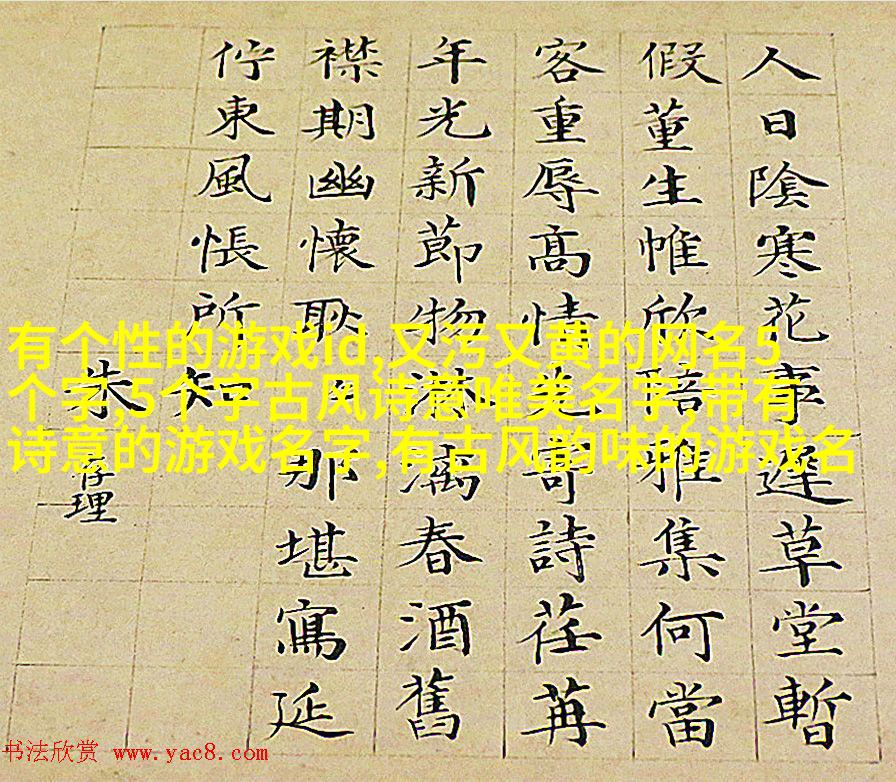 人日陰寒花事遲草堂暫
假董生帷欣陪雅集何當
客重辱高情先寄詩荏苒
年光新節物淋漓春酒舊
襟期幽懷耿〻那堪寫延
佇東風悵所知
朱存理
有个性的游戏id,又污又黄的网名5
个字,5个字古风诗意唯美名字,带有
诗意的游戏名字,有古风韵味的游戏名
书法欣赏 www.yac8.com